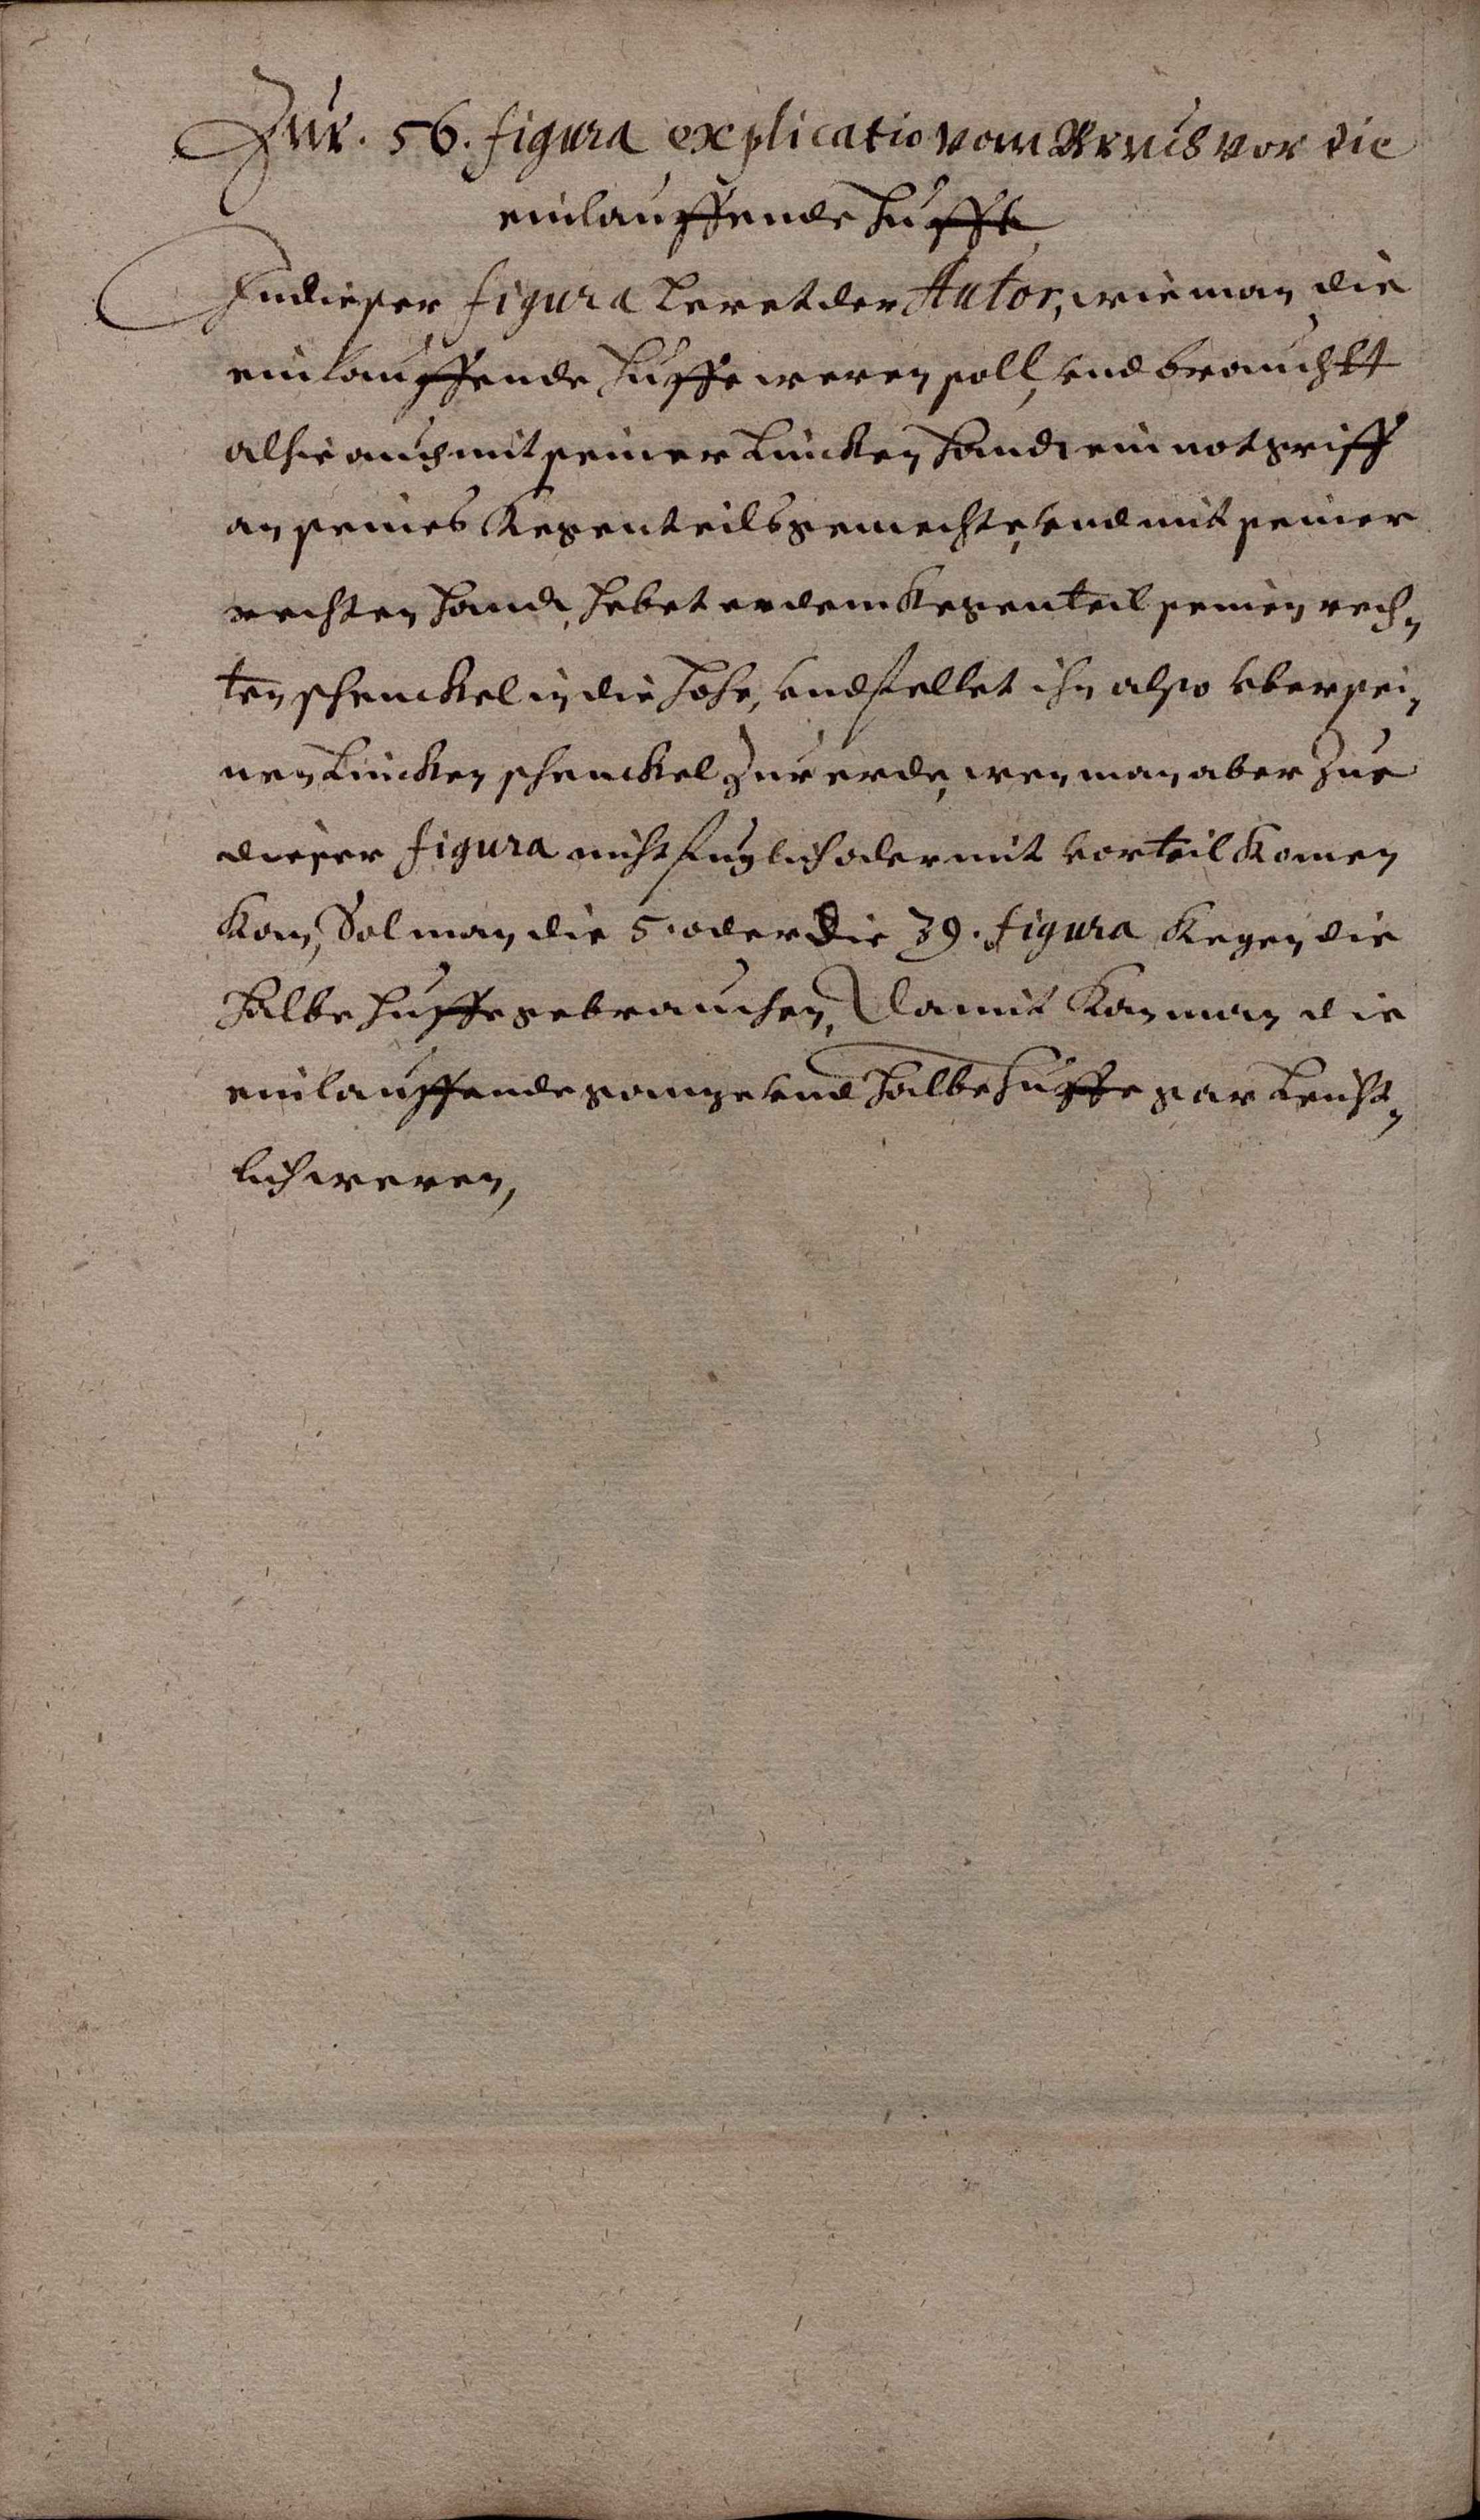 Zur. 56. figura explicatio vom Bruch vor die
einlauffende huffe
In dieser figura leret der Autor, wie man die
einlauffende huffe weren soll, vnd braucht
alhie auch mit seiner lincken handt ein notgriff
an seines kegenteils gemechte, vnd mit seiner
rechten handt, hebet er dem kegenteil seinen rech-
ten schenckel in die hohe, vnd stellet ihn also vber sei-
nen lincken schenckel zur erde, wen man aber zue
dieser figura nicht fuglich oder mit vorteil komen
kan, Sol man die 5. oder die 39. figura kegen die
halbe huffe gebrauchen, damit kan man die
einlauffende gantze vnd halbe huffe gar leicht-
lich weren,